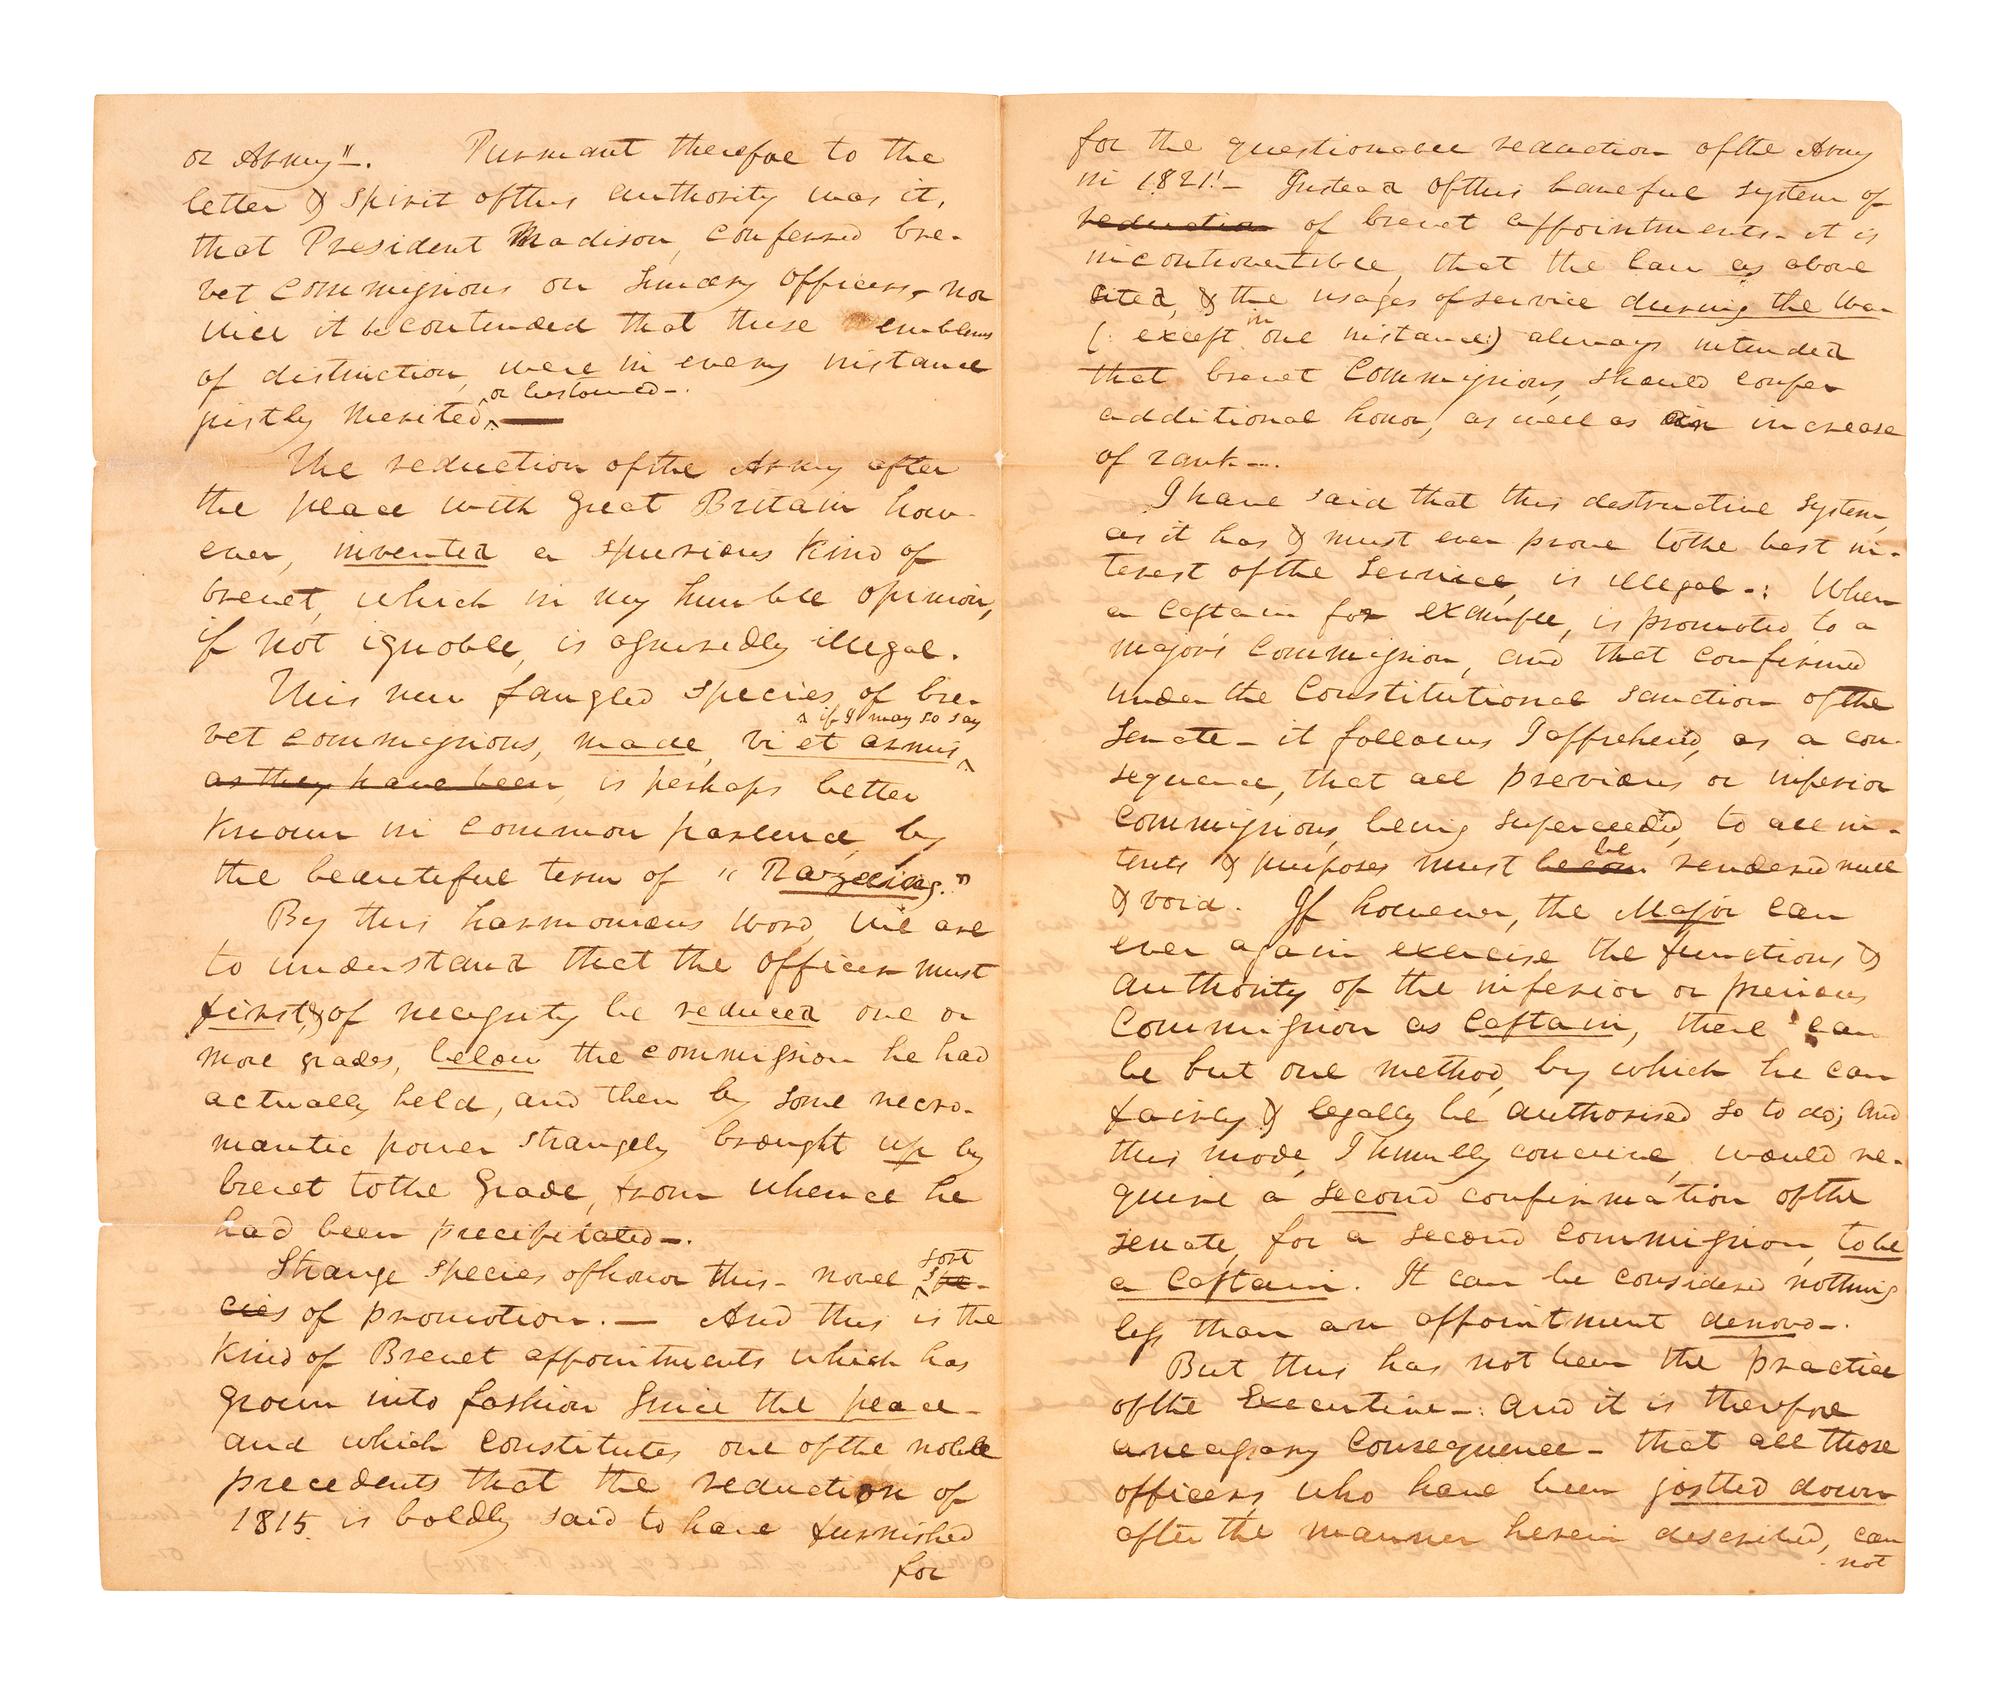 or Army"-. Pursuant therefore to the
letter & spirit of this authority was it,
that President Madison, conferred bre-
vet commissions on sundry officers, nor
will it be contended that these emblems
of distinction, were in every instance
or bestowed-.
justly merited, —
The reduction of the Army after
the peace with Great Britain how-
ever, invented a spurious kind of
brevet, which in my humble opinion,
if not ignoble, is assuredly illegal.
This new fangled species, of bre-
if I may so say
vet commissions, made, vi et armis,
as they have been, is perhaps better
known in common parlence, by
the beautiful term of "Razeeing."
By this harmonious word, we are
to understand that the officer must
first, & of necessity be reduced one or
more grades, below the commission he had
actually held, and then by some necro-
mantic power strangely brought up by
brevet to the Grade, from whence he
had been precipitated-.
Strange species of honor this- novel sort spe-
cies of promotion. — And this is the
kind of Brevet appointments which has
grown into fashion since the peace-
and which constitutes one of the noble
precedents that the reduction of
1815 is boldly said to have furnished
for
for the questionable reduction of the Army
in 1821!- Instead of this baneful system of
reduction of brevet appointments- it is
incontrovertible, that the law as above
cited, & the usages of service during the War
(: except in one instance:) always intended
that brevet Commissions, should confer
additional honor, as well as an increase
of rank-.
I have said that this destructive system,
as it has & must ever prove to the best in-
terest of the Service, is illegal-: When
a Captain for example, is promoted to a
major's Commission, and that confirmed
under the Constitutional sanction of the
Senate- it follows I apprehend, as a con-
sequence, that all previous or inferior
Commissions, being superceeded, to all in-
tents & purposes must becom be rendered null
& void. If however, the Major can
ever again exercise the functions &
authority of the inferior or previous
Commission as Captain, there can
be but one method, by which he can
fairly & legally be authorised so to do; and
this mode, I humbly conceive, would re-
quire a second confirmation of the
senate, for a second commission, to be
a Captain. It can be considered nothing
less than an appointment denovo-.
But this has not been the practice
of the Executive-: and it is therefore
a necessary consequence- that all those
officers who have been jostled down
after the manner herein described, can
not